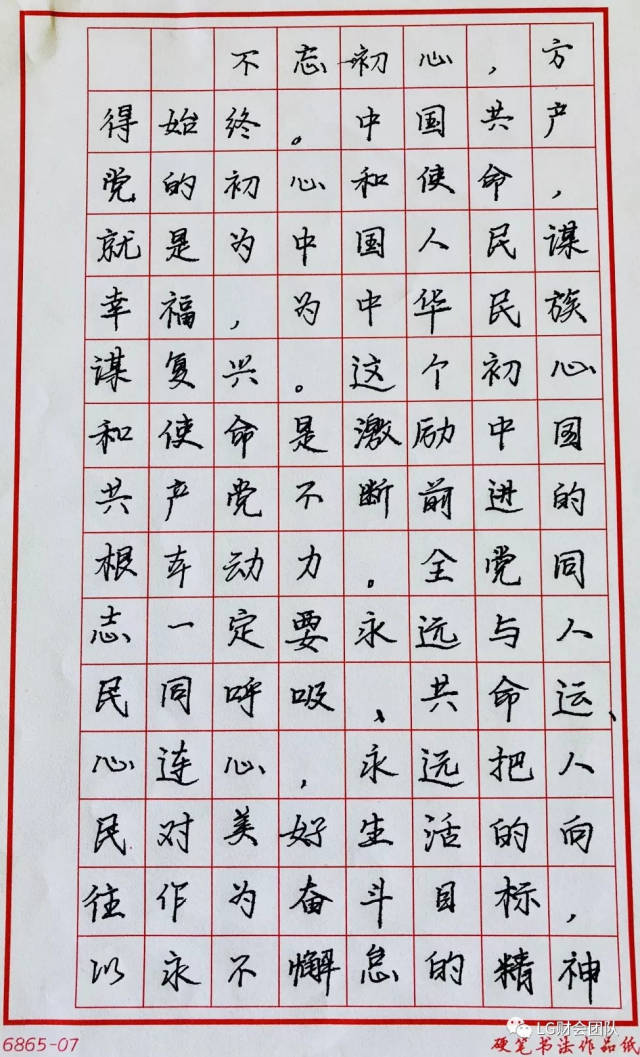 不忘初心，方
得始终。中国共产
党的初心和使命，
就是为中国人民谋
幸福，为中华民族
谋复兴。这个初心
和使命是激励中国
共产党不断前进的
根本动力。全党同
志一定要永远与人
民同呼吸、共命运、
心连心，永远把人
民对美好生活的向
往作为奋斗目标，
以永不懈怠的精神
LG财会团队
6865-07 硬笔书法作品纸